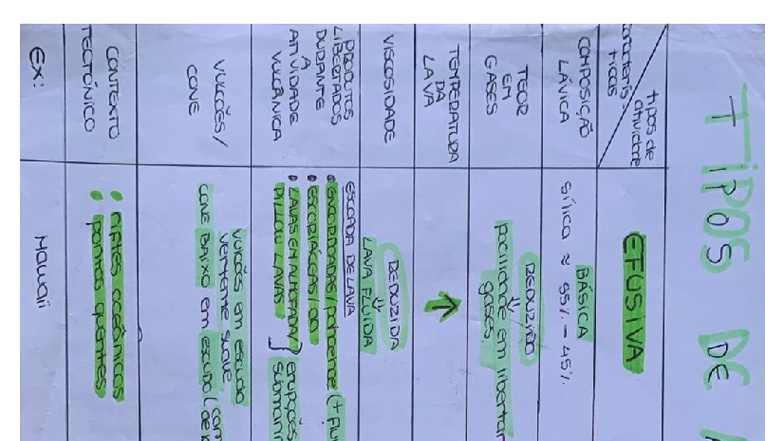 TIPOS DE
tipos de
atividade
caracterís-
ticas
EFUSIVA
COMPOSIÇÃO
LÁVICA
BÁSICA
sílica ≈ 55% - 45%
TEOR
EM
GASES
REDUZIDO
facilidade em libertar
gases
TEMPERATURA
DA
LAVA
VISCOSIDADE
REDUZIDA
LAVA FLUIDA
PRODUTOS
LIBERTADOS
DURANTE
A
ATIVIDADE
VULCÂNICA
ESCOADA DE LAVA
• ENCORDOADAS/pahoehoe (+
• ESCORIÁCEAS/aa
• LAVAS EM ALMOFADA/
PILLOW LAVAS
erupções
VULCÕES/
CONE
VULCÕES em escudo
vertente suave
CONE BAIXO em escudo
CONTEXTO
TECTÓNICO
• riftes oceânicos
• pontos quentes
EX:
Hawaii